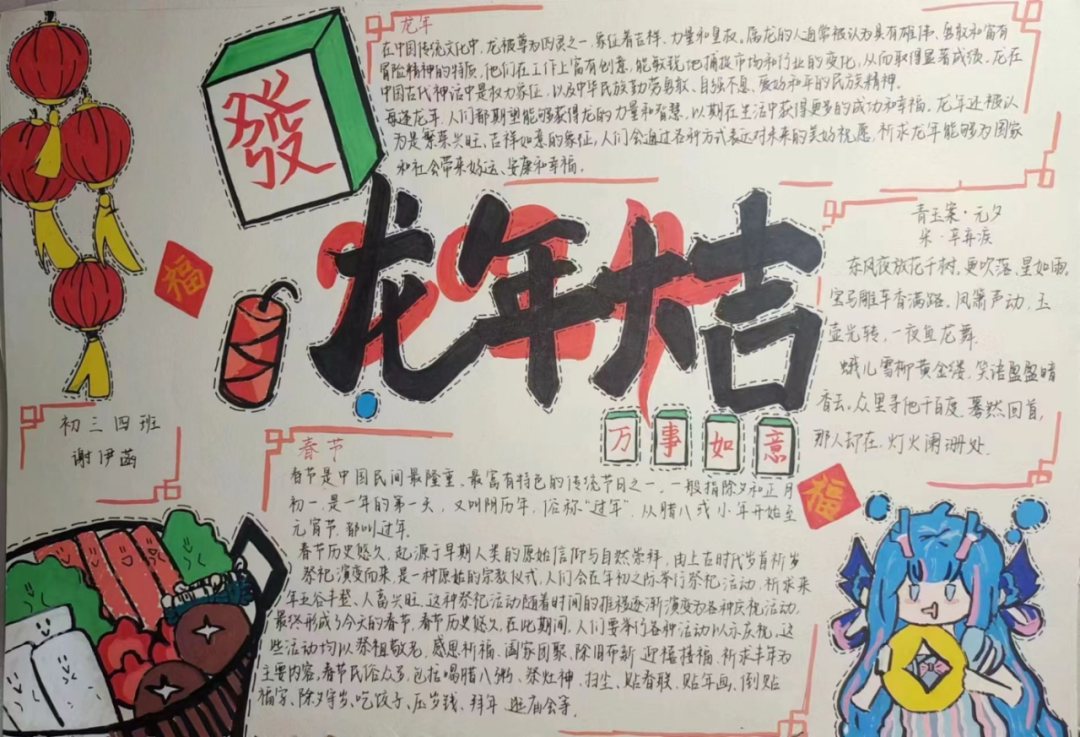 發
龙年
在中国传统文化中，龙被尊为四灵之一，象征着吉祥、力量和皇权。属龙的人通常被认为具有雄伟、勇敢和富有
冒险精神的特质，他们在工作上富有创意，能敏锐地捕捉市场和行业的变化，从而取得显著成绩。龙在
中国古代神话中是权力象征，以及中华民族勤劳勇敢、自强不息、爱好和平的民族精神。
每逢龙年，人们都期望能够获得龙的力量和智慧，以期在生活中获得更多的成功和幸福。龙年还被认
为是繁荣兴旺、吉祥如意的象征，人们会通过各种方式表达对未来的美好祝愿，祈求龙年能够为国家
和社会带来好运、安康和幸福。
福
2024
龙年大吉
青玉案·元夕
宋·辛弃疾
东风夜放花千树，更吹落，星如雨。
宝马雕车香满路。凤箫声动，玉
壶光转，一夜鱼龙舞。
蛾儿雪柳黄金缕，笑语盈盈暗
香去。众里寻他千百度，蓦然回首，
那人却在，灯火阑珊处。
万事如意
福
初三四班
谢伊菡
春节
春节是中国民间最隆重、最富有特色的传统节日之一，一般指除夕和正月
初一，是一年的第一天，又叫阴历年，俗称"过年"。从腊八或小年开始至
元宵节，都叫过年。
春节历史悠久，起源于早期人类的原始信仰与自然崇拜，由上古时代岁首祈岁
祭祀演变而来，是一种原始的宗教仪式，人们会在年初之际举行祭祀活动，祈求来
年五谷丰登、人畜兴旺。这种祭祀活动随着时间的推移逐渐演变为各种庆祝活动，
最终形成了今天的春节。春节历史悠久，在此期间，人们要举行各种活动以示庆祝，这
些活动均以祭祖敬老，感恩祈福、阖家团聚、除旧布新、迎禧接福、祈求丰年为
主要内容。春节民俗众多，包括喝腊八粥、祭灶神、扫尘、贴春联、贴年画、倒贴
福字、除夕守岁、吃饺子、压岁钱、拜年、逛庙会等。